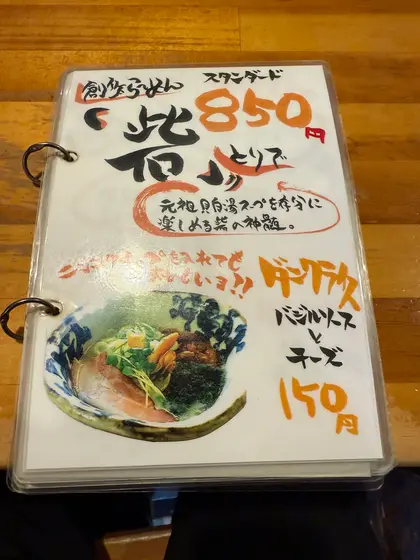 創作らーめん
スタンダード
「砦」850円
とりで
元祖貝白湯スープを存分に
楽しめる砦の神髄。
を入れても
おいしいヨ!!
バジルソース
と
チーズ
150円